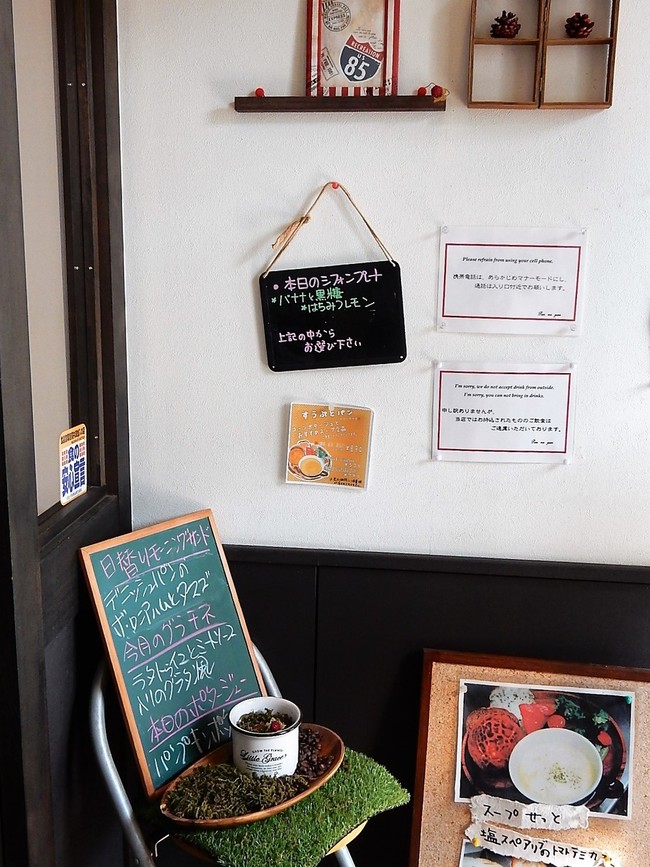 RECREATION
U S
85
Please refrain from using your cell phone.
携帯電話は、あらかじめマナーモードにし、
通話は入り口付近でお願いします。
●本日のシフォンプレート
*バナナと黒糖
*はちみつレモン
上記の中から
お選び下さい
I'm sorry, we do not accept drink from outside.
I'm sorry, you can not bring in drinks.
申し訳ありませんが、
当店ではお持込されたもののご飲食は
ご遠慮いただいております。
食の
安心宣言
日替りモーニングサンド
デニッシュパンの
今月のグラチネ
ラタトゥイユとミートソース
入りのグラタン風
本日のポタージュ
パンプキンポ
Little Green
スープせっと
塩スペアリブのトマトデミカ